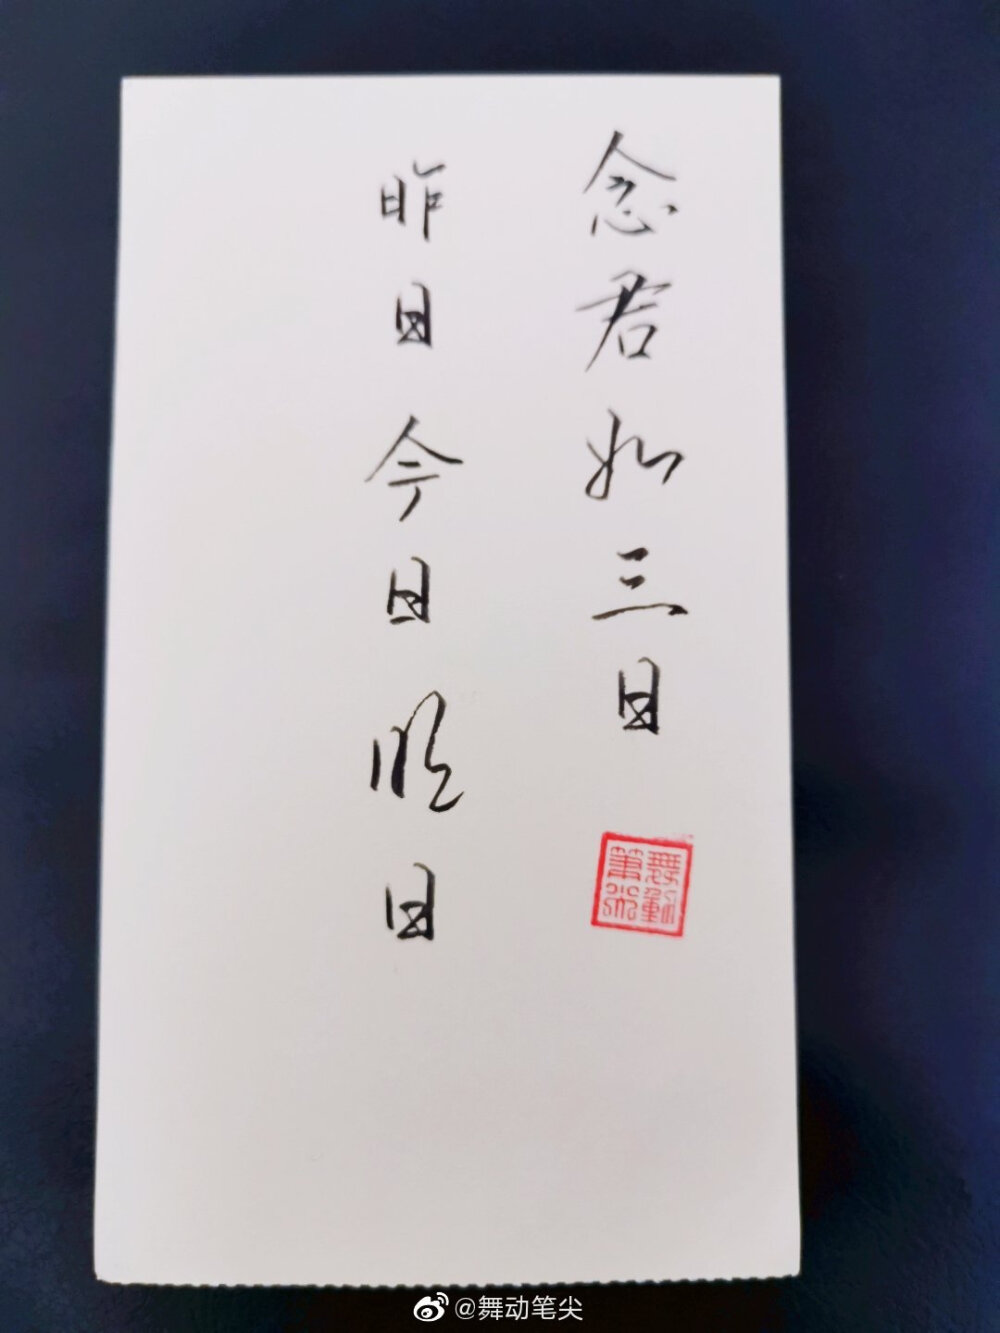 念君如三日
昨日今日明日
舞動筆尖
@舞动笔尖